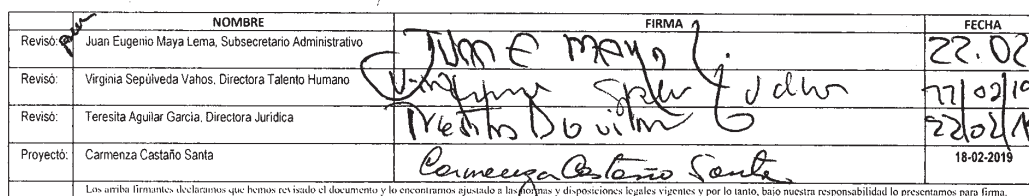 NOMBRE FIRMA FECHA
Revisó: Juan Eugenio Maya Lema, Subsecretario Administrativo 22.02
Revisó: Virginia Sepúlveda Vahos, Directora Talento Humano
Revisó: Teresita Aguilar Garcia, Directora Jurídica 22/02/1
Proyectó: Carmenza Castaño Santa Carmenza Castaño Santa 18-02-2019
Los arriba firmantes declaramos que hemos revisado el documento y lo encontramos ajustado a las normas y disposiciones legales vigentes y por lo tanto, bajo nuestra responsabilidad lo presentamos para firma.